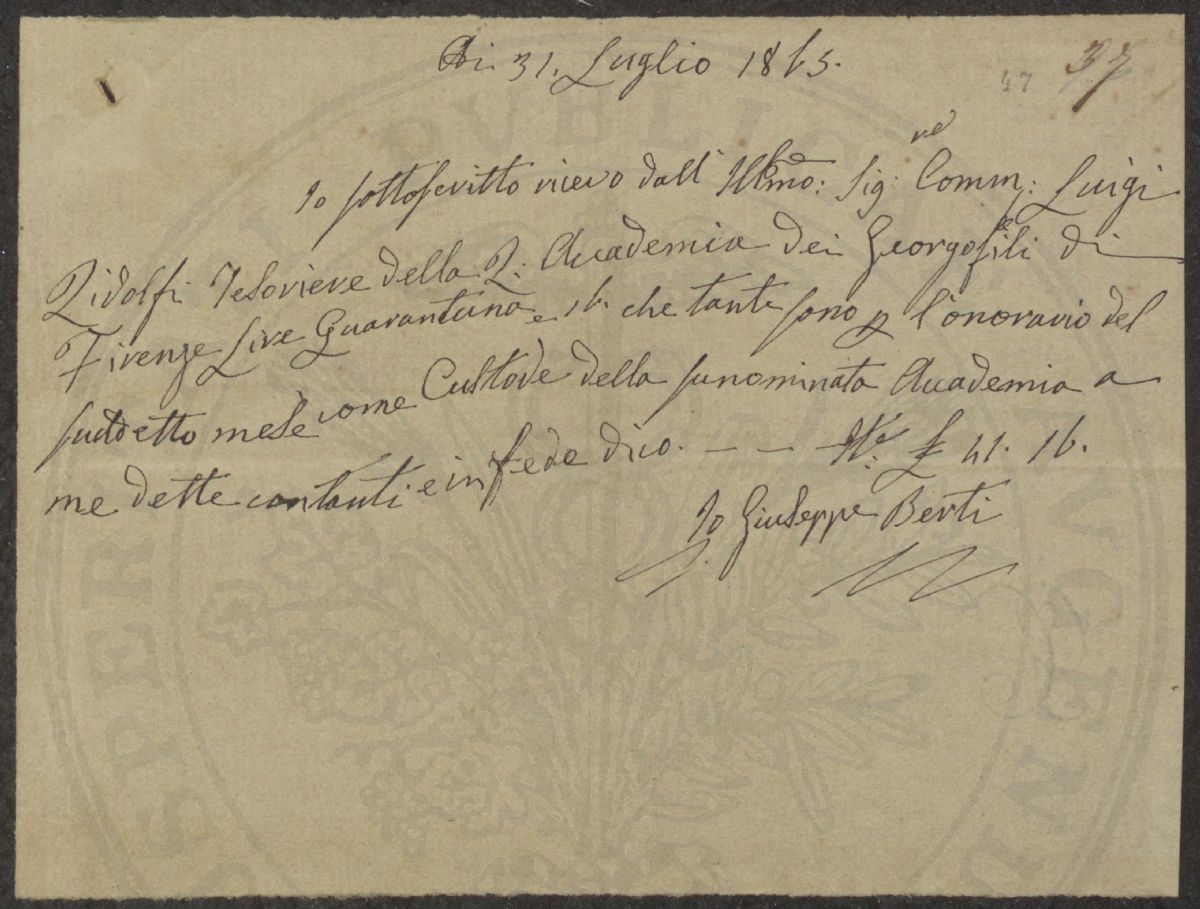 Adi 31. Luglio 1865.
47 37
Io sottoscritto ricevo dall' Illmo: Sig: Comm:re Luigi
Ridolfi Tesoriere della R: Accademia dei Georgofili di
Firenze Lire Quarantuna e 16. che tante sono p l'onorario del
suddetto mese come Custode della sunominata Accademia a
me dette contanti e in fede dico. — — £ 41. 16.
Io Giuseppe Berti
PUBLICAE
PROSPERITATI AUGENDAE